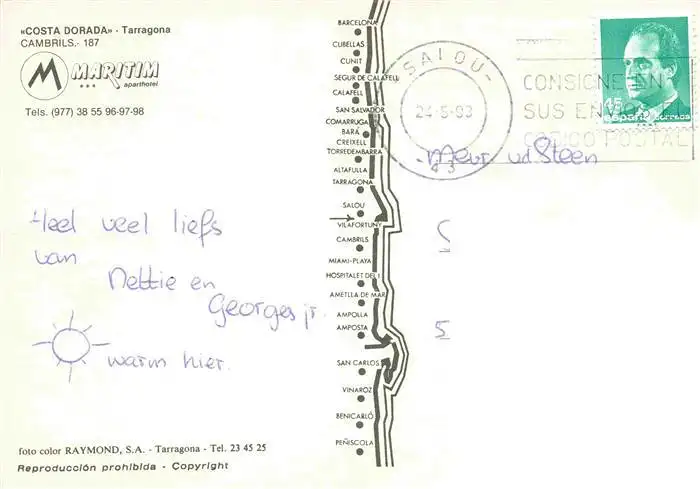 «COSTA DORADA» - Tarragona
CAMBRILS.- 187
M MARITIM
aparthotel
Tels. (977) 38 55 96-97-98
Heel veel liefs
van
Nettie en
Georges jr.
warm hier.
foto color RAYMOND, S.A. - Tarragona - Tel. 23 45 25
Reproducción prohibida - Copyright
BARCELONA
CUBELLAS
CUNIT
SEGUR DE CALAFELL
CALAFELL
SAN SALVADOR
COMARRUGA
BARÁ
CREIXELL
TORREDEMBARRA
ALTAFULLA
TARRAGONA
SALOU
VILAFORTUNY
CAMBRILS
MIAMI-PLAYA
HOSPITALET DEL I.
AMETLLA DE MAR
AMPOLLA
AMPOSTA
SAN CARLOS
VINAROZ
BENICARLÓ
PEÑISCOLA
SALOU
24-5-93
43
CONSIGNE EN
SUS ENVIOS
CODIGO POSTAL
45
españa correos
Mevr. vd Steen
5